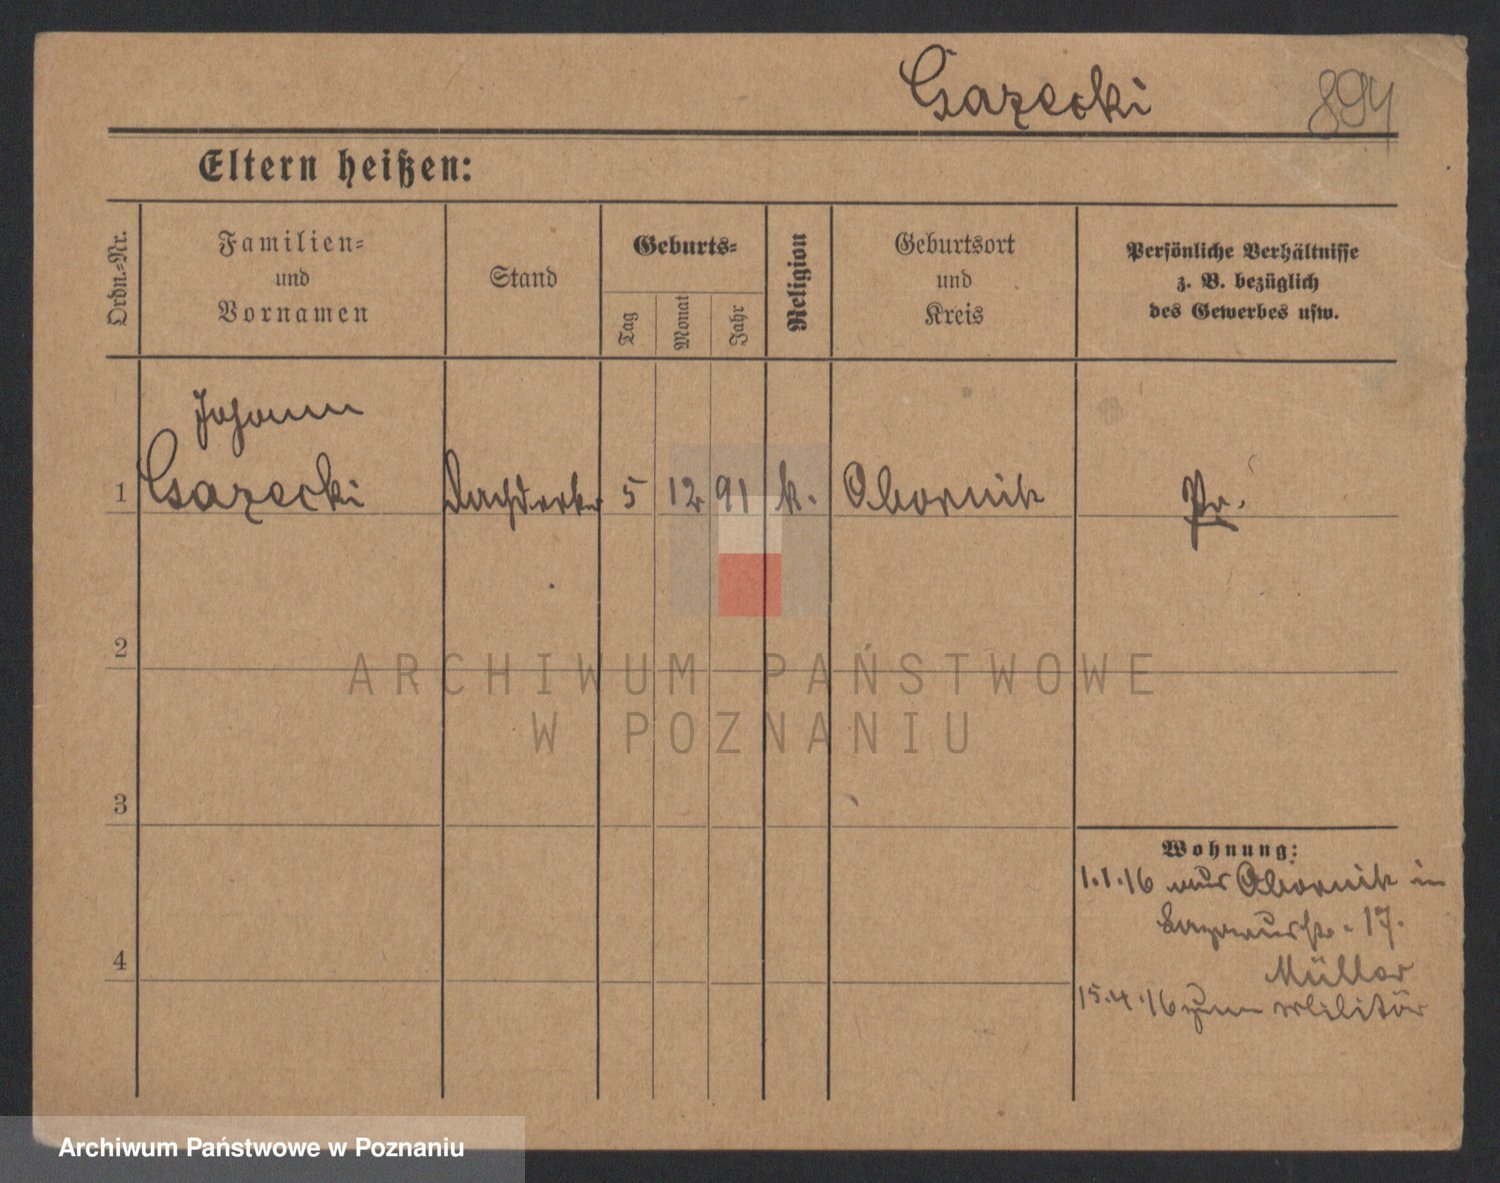 Gazecki 894
Eltern heißen:
Ordn.-Nr.
Familien-
und
Vornamen
Stand
Geburts-
Tag
Monat
Jahr
Religion
Geburtsort
und
Kreis
Persönliche Verhältnisse
z. B. bezüglich
des Gewerbes usw.
Johann
1 Gazecki Dachdecker 5 12 91 k. Obornik Pr.
2
ARCHIWUM PAŃSTWOWE
W POZNANIU
3
Wohnung:
1.1.16 aus Obornik in
17.
Müller
4
15.4.16 zum Militär
Archiwum Państwowe w Poznaniu